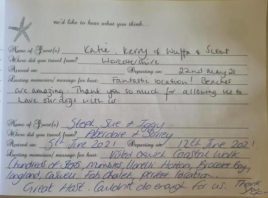 we'd like to hear what you think...
Name of Guest(s) Katie, Kerry & Wuffa & Scout
Where did you travel from? Worcestershire
Arrived on 22nd May 21
Lasting memories/message for host: Fantastic location! Beaches
are amazing. Thank you so much for allowing us to
have our dogs with us
Name of Guest(s) Steph, Sue & Iggy
Where did you travel from? Aberdare &
Arrived on 5th June 2021 12th June 2021
Lasting memories/message for host: Coastal Walk
Hundreds of steps,
Langland, Caswell, location
Great Host. Couldn't do enough for us. Thank